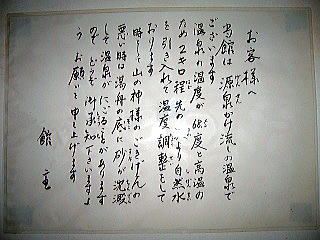 お客様へ
当館は源泉かけ流しの温泉で
ございます
温泉の温度が68度と高温の
ため2キロ程先の より自然水
を引き入れて温度調整をして
おります
時として山の神様のごきげんの
悪い時は湯舟の底に砂が沈澱
して温泉がにごる事があります
のでどうぞ御承知下さいますよ
うお願いを申し上げます
館主